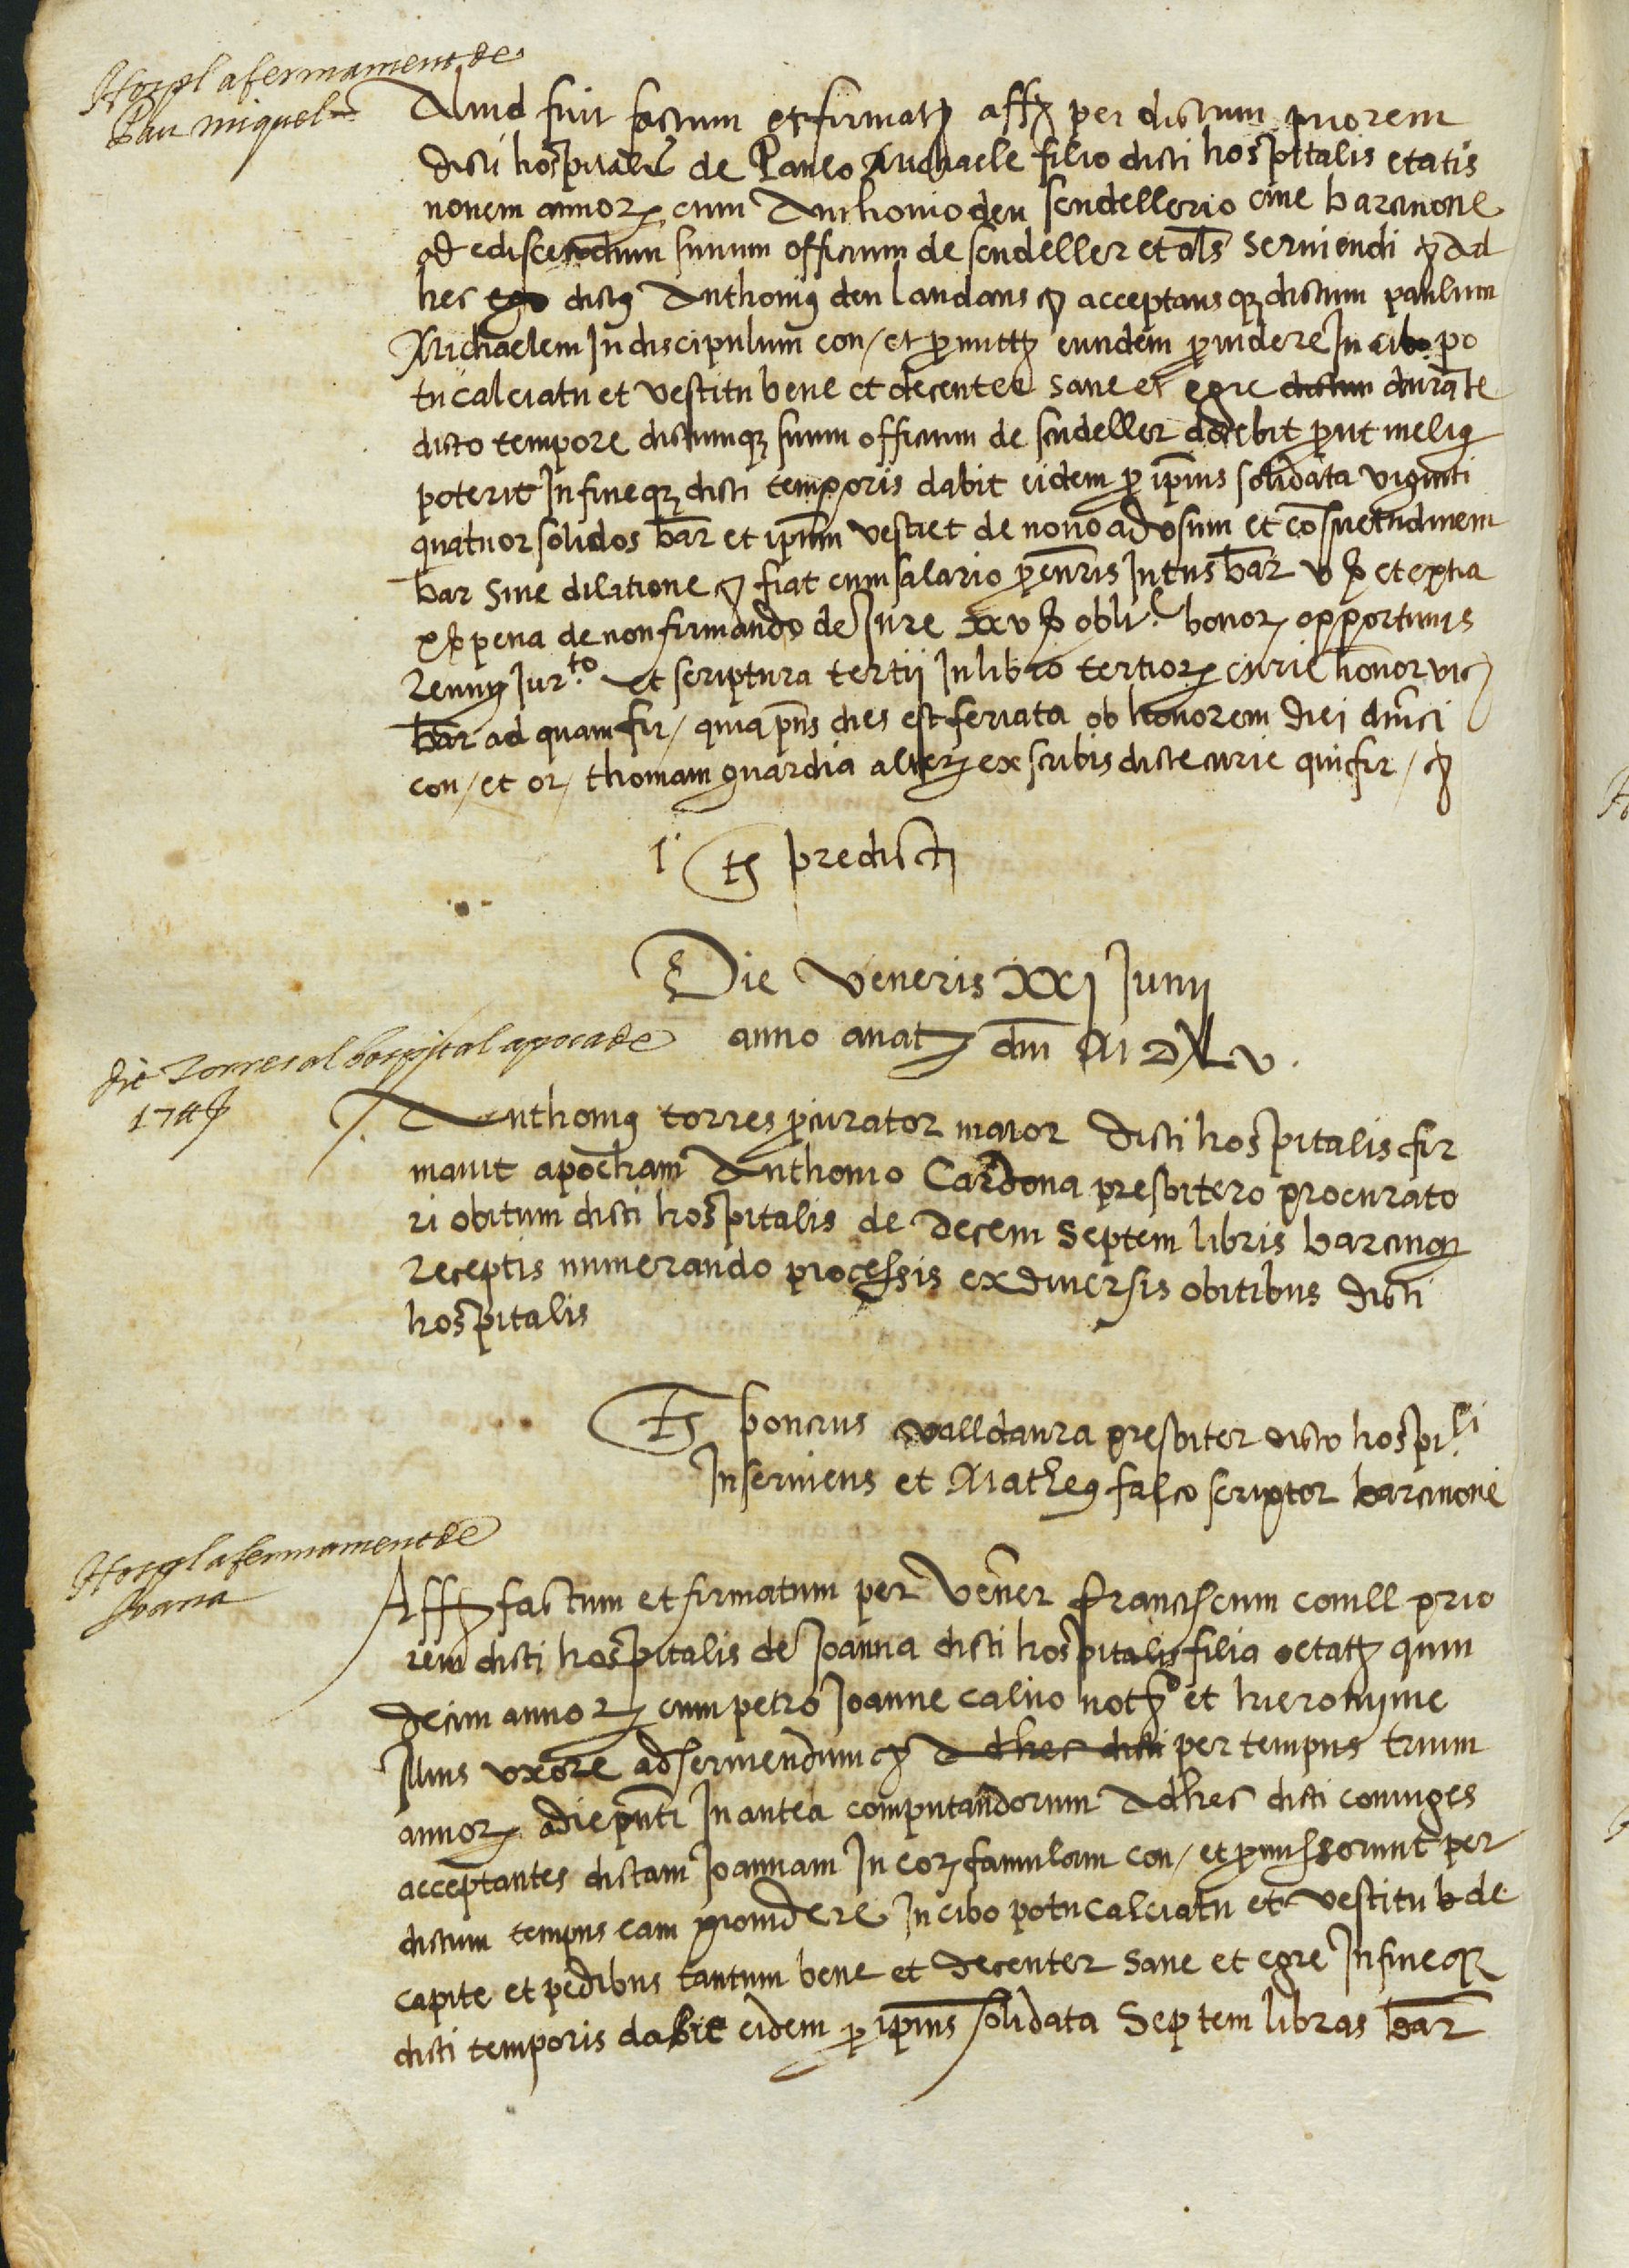 Hospl afermament de
Pau miquel
Aliud fuit factum et firmatz aff per dictum priorem
dicti hospitalis de Paulo Michaele filio dicti hospitalis etatis
novem annorz cum Anthonio den scudellerio cive barcinone
ad ediscendum suum officium de scudeller et als serviendi Ad
hec ego dictus Anthonius den laudans acceptansqz dictum paulum
Michaelem In discipulum con / et promittz eundem providere In cibo po
tu calciatu et vestitu bene et decenter sane et egre dictum durate
dicto tempore dictumqz suum officium de scudeller docebit prout melius
poterit In fineqz dicti temporis dabit eidem pro ipius solidata viginti
quatuor solidos bar et ipum vestiet de novo ad usum et cosuetudinem
bar sine dilatione fiat cum salario procuris Intus bar v ss et extra
x ss pena de non firmando de Jure xxv ss obli bonorz opportunis
Renuns Jurto et scriptura tertii In libro tertiorz curie honor vic
bar ad quam fir / quia pns dies est feriata ob honorem diei dmci
con / et or / thomam guardia alterz ex scribis dicte curie qui fir /
ts predicti
Die veneris xxj Junij
anno anatz dm M D XL v.
de Torres al hospital apoca de
17 ₶
/. Anthonius torres procurator maior dicti hospitalis fir
mavit apocham Anthonio Cardona presbitero procurato
ri obitum dicti hospitalis de decem septem libris barcinon
Receptis numerando processis ex diversis obitibus dicti
hospitalis
Ts poncius valldaura presbiter dicto hospili
Inserviens et Matheus falco scriptor barcinone
Hospl afermament de
Joana
Aff factum et firmatum per vener franciscum comill prio
rem dicti hospitalis de Joanna dicti hospitalis filia etatz quin
decim annorz cum petro Joanne calvo noto et hieronyme
Illius uxore ad serviendum Ad hec dicti per tempus trium
annorz a die pnti In antea computandorum Ad hec dicti coniuges
acceptantes dictam Joannam In eorz famulam con / et promisserunt per
dictum tempus eam providere In cibo potu calciatu et vestitu b de
capite et pedibus tantum bene et decenter sane et egre In fineqz
dicti temporis dabit eidem pro ipius solidata septem libras bar